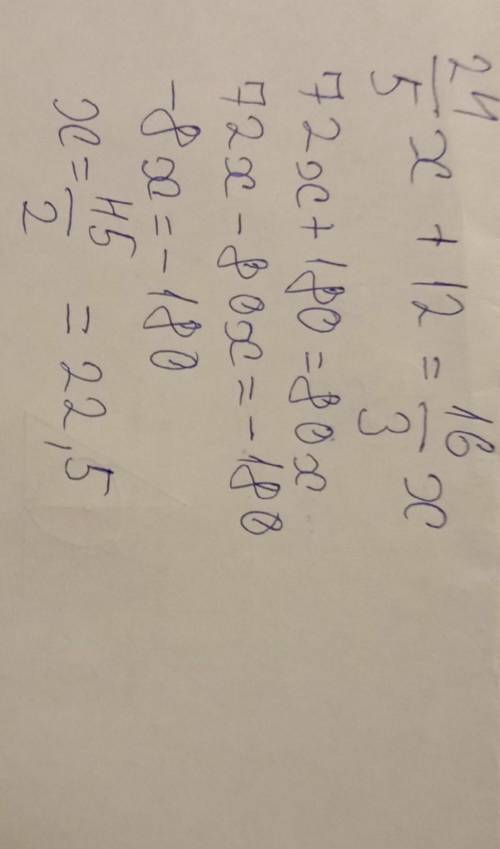 24/5 x + 12 = 16/3 x
72x + 180 = 80x
72x - 80x = -180
-8x = -180
x = 45/2 = 22,5